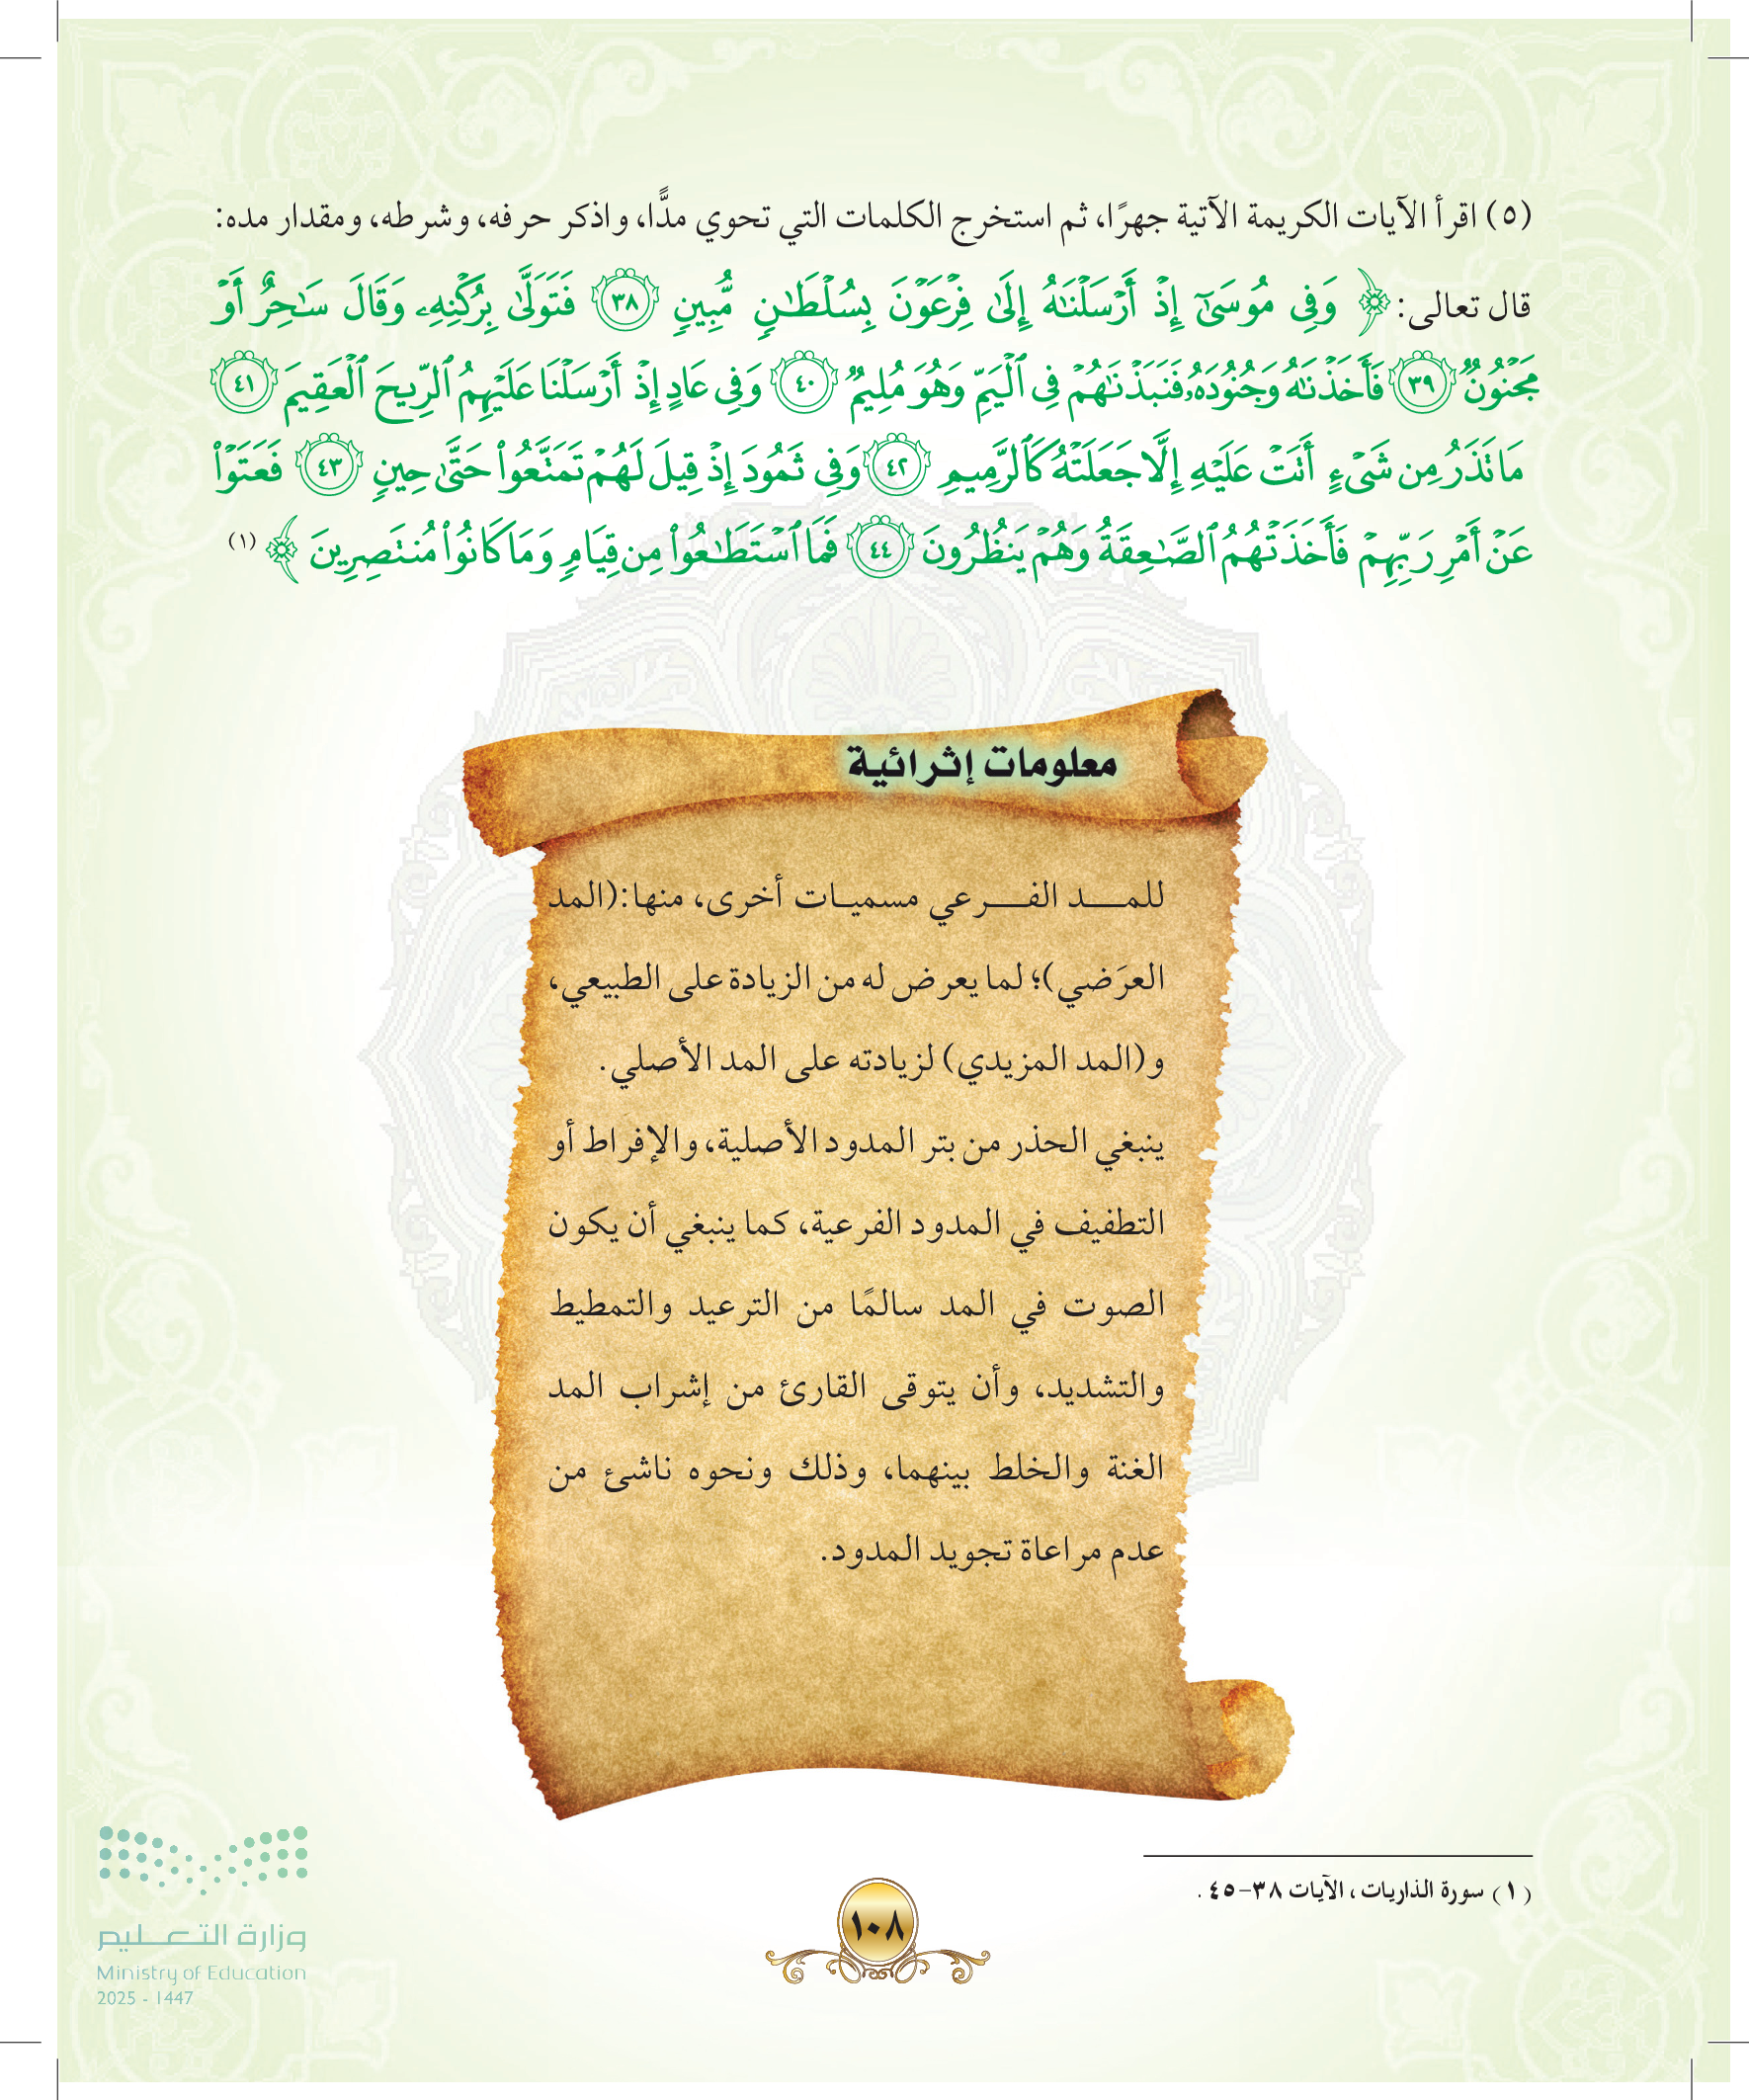 (٥) اقرأ الآيات الكريمة الآتية جهرًا، ثم استخرج الكلمات التي تحوي مدًّا، واذكر حرفه، وشرطه، ومقدار مده:
قال تعالى: ﴿ وَفِى مُوسَىٰٓ إِذْ أَرْسَلْنَـٰهُ إِلَىٰ فِرْعَوْنَ بِسُلْطَـٰنٍ مُّبِينٍ ٣٨ فَتَوَلَّىٰ بِرُكْنِهِۦ وَقَالَ سَـٰحِرٌ أَوْ
مَجْنُونٌ ٣٩ فَأَخَذْنَـٰهُ وَجُنُودَهُۥ فَنَبَذْنَـٰهُمْ فِى ٱلْيَمِّ وَهُوَ مُلِيمٌ ٤٠ وَفِى عَادٍ إِذْ أَرْسَلْنَا عَلَيْهِمُ ٱلرِّيحَ ٱلْعَقِيمَ ٤١
مَا تَذَرُ مِن شَىْءٍ أَتَتْ عَلَيْهِ إِلَّا جَعَلَتْهُ كَٱلرَّمِيمِ ٤٢ وَفِى ثَمُودَ إِذْ قِيلَ لَهُمْ تَمَتَّعُوا۟ حَتَّىٰ حِينٍ ٤٣ فَعَتَوْا۟
عَنْ أَمْرِ رَبِّهِمْ فَأَخَذَتْهُمُ ٱلصَّـٰعِقَةُ وَهُمْ يَنظُرُونَ ٤٤ فَمَا ٱسْتَطَـٰعُوا۟ مِن قِيَامٍ وَمَا كَانُوا۟ مُنتَصِرِينَ ﴾ (١)
معلومات إثرائية
للمـد الفـرعي مسميـات أخرى، منها: (المد
العرَضي)؛ لما يعرض له من الزيادة على الطبيعي،
و(المد المزيدي) لزيادته على المد الأصلي.
ينبغي الحذر من بتر المدود الأصلية، والإفراط أو
التطفيف في المدود الفرعية، كما ينبغي أن يكون
الصوت في المد سالمًا من الترعيد والتمطيط
والتشديد، وأن يتوقى القارئ من إشراب المد
الغنة والخلط بينهما، وذلك ونحوه ناشئ من
عدم مراعاة تجويد المدود.
(١) سورة الذاريات، الآيات ٣٨-٤٥.
١٠٨
وزارة التـعـليم
Ministry of Education
2025 - 1447